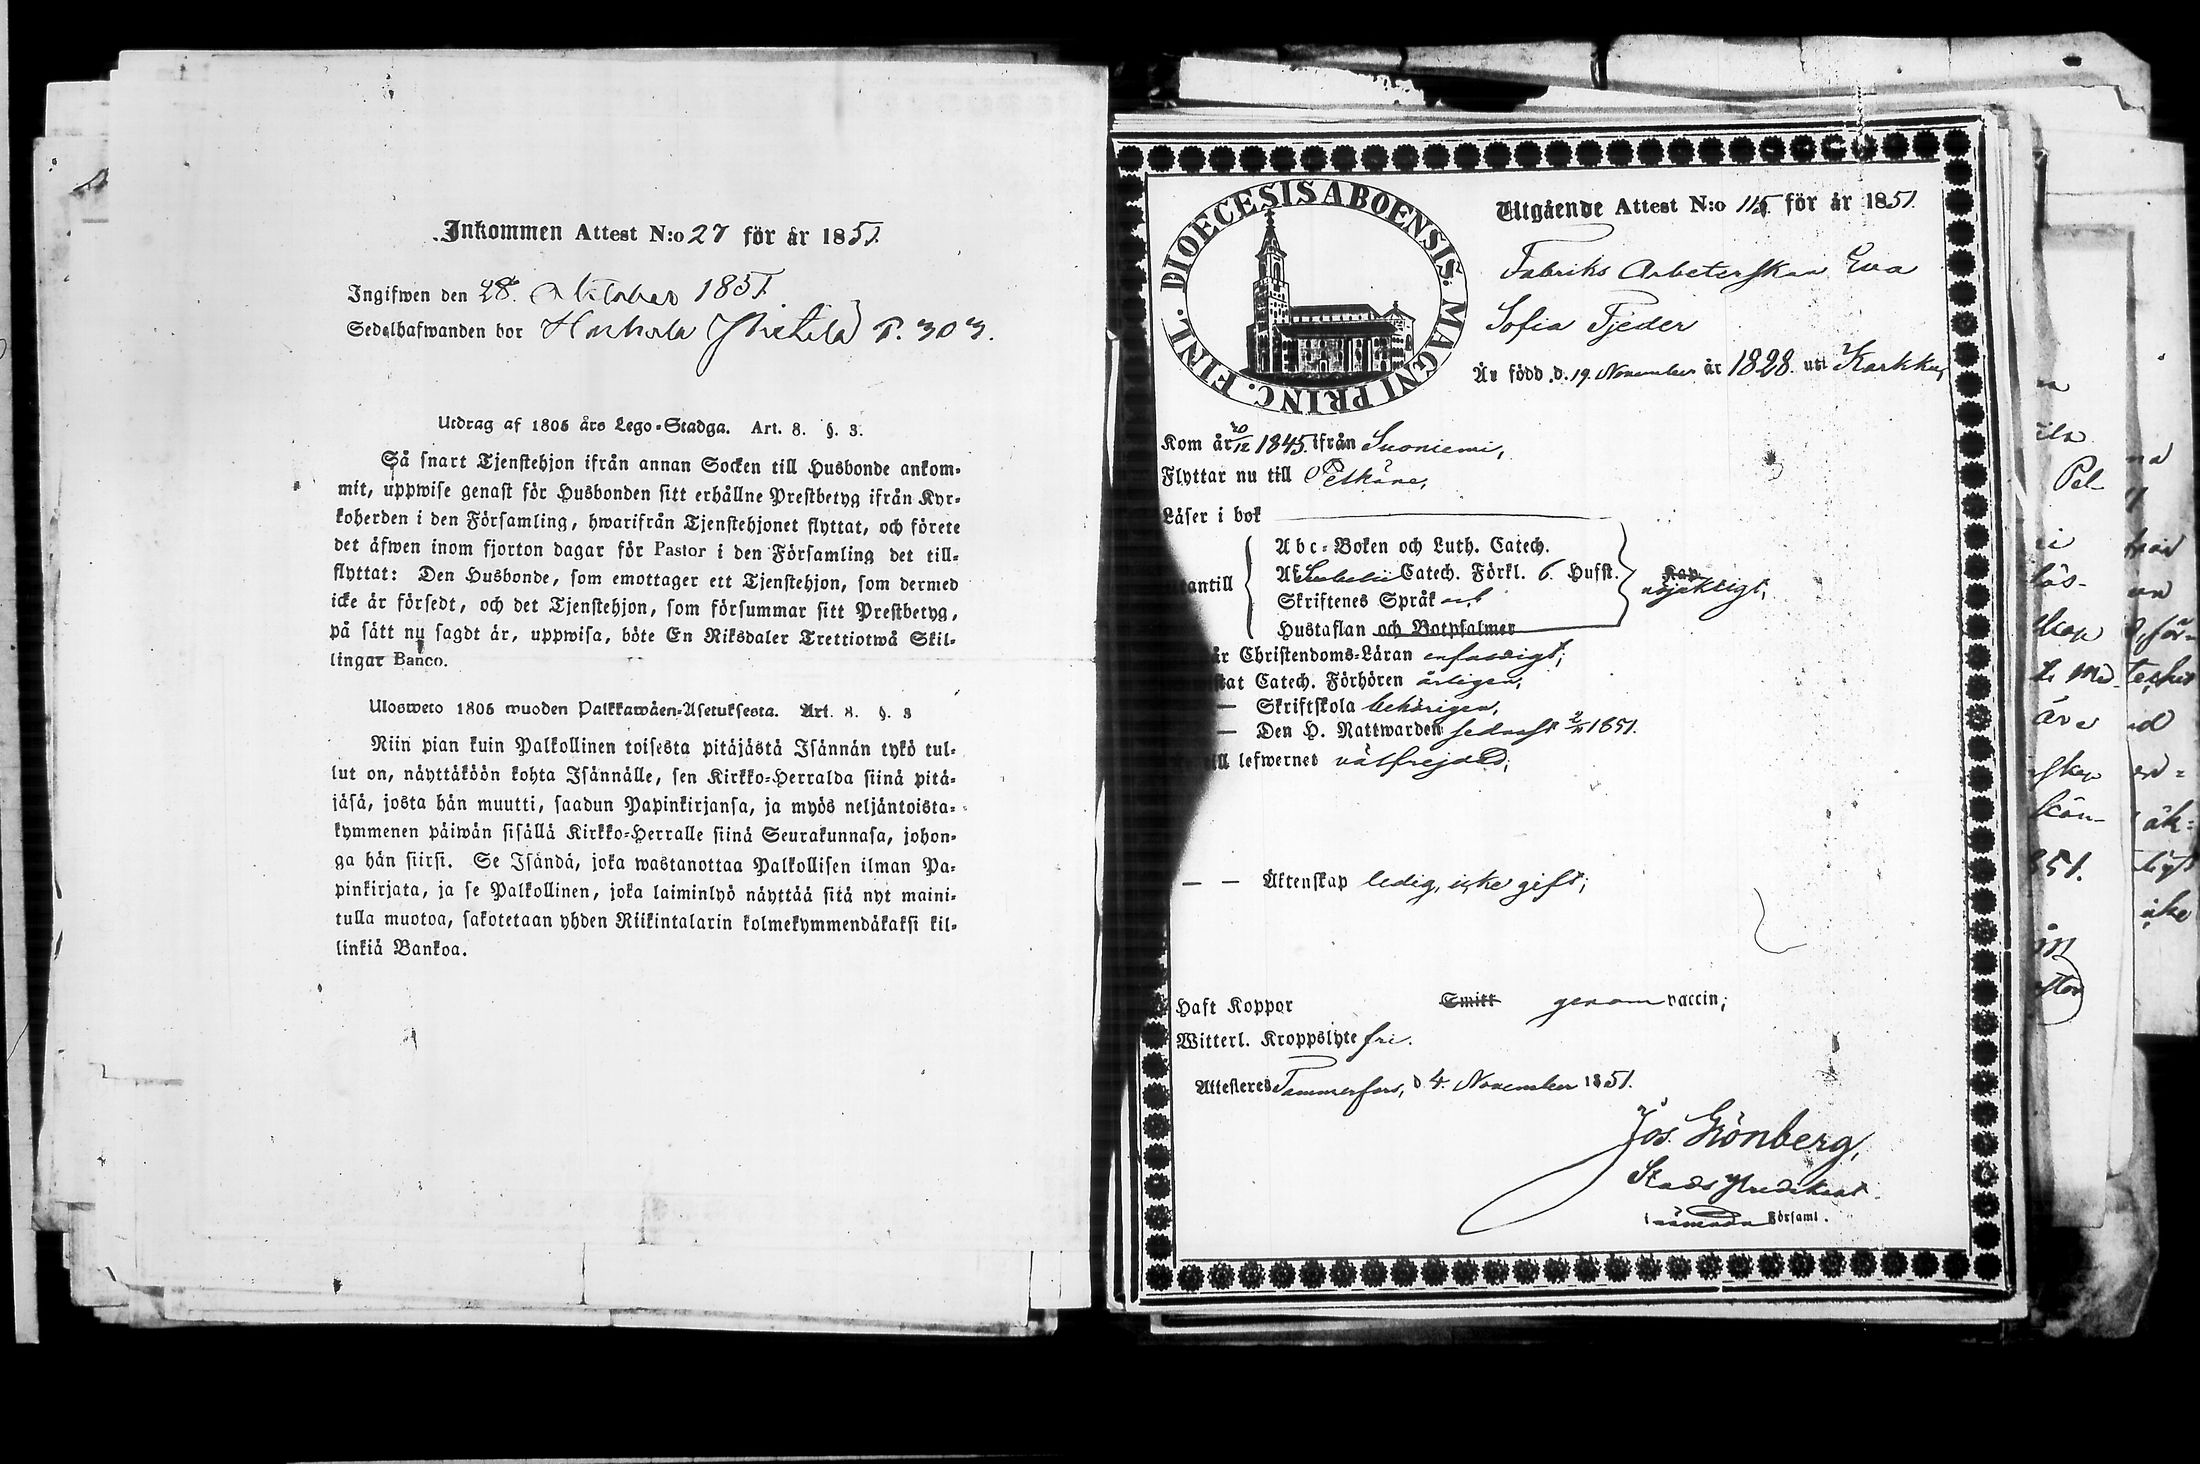 Inkommen Attest N:o 27 för år 1851
Ingifwen den 28. Oktober 1851
Sedelhafwanden bor P. 303.
Utdrag af 1805 års Lego-Stadga. Art. 8. §. 3.
Så snart Tjenstehjon ifrån annan Socken till Husbonde ankom-
mit, uppwise genast för Husbonden sitt erhållne Prestbetyg ifrån Kyr-
koherden i den Församling, hwarifrån Tjenstehjonet flyttat, och förete
det äfwen inom fjorton dagar för Pastor i den Församling det till-
flyttat: Den Husbonde, som emottager ett Tjenstehjon, som dermed
icke är försedt, och det Tjenstehjon, som försummar sitt Prestbetyg,
på sätt nu sagdt är, uppwisa, böte En Riksdaler Trettiotwå Skil-
lingar Banco.
Ulosweto 1805 wuoden Palkkawäen-Asetuksesta. Art. 8. §. 3
Niin pian kuin Palkollinen toisesta pitäjästä Isännän tykö tul-
lut on, näyttäköön kohta Isännälle, sen Kirkko-Herralda siinä pitä-
jäsä, josta hän muutti, saadun Papinkirjansa, ja myös neljäntoista-
kymmenen päiwän sisällä Kirkko-Herralle siinä Seurakunnasa, johon-
ga hän siirsi. Se Isändä, joka wastanottaa Palkollisen ilman Pa-
pinkirjata, ja se Palkollinen, joka laiminlyö näyttää sitä nyt maini-
tulla muotoa, sakotetaan yhden Riikintalarin kolmekymmendäkaksi kil-
linkiä Bankoa.
DIOECESIS ABOENSIS. MAGNI PRINC. FINL.
Utgående Attest N:o 115 för år 1851
Fabriks Arbeterskan Eva
Sofia Tjeder
Är född d. 19 November år 1828. uti Karkku,
Kom år 20/12 1845. ifrån Suoniemi,
Flyttar nu till Pelkäne,
Läser i bok
Abc-Boken och Luth. Catech.
Af Catech. Förkl. 6. Husst.
utantill nöjaktigt,
Skriftenes Språk och
Hustaflan och Botpsalmer
år Christendoms-Läran enfaldigt;
stat Catech. Förhören årligen,
— Skriftskola behörigen,
— Den H. Nattwarden sednast 1851.
till lefwernet välfrejdad;
— — Äktenskap ledig, icke gift;
Haft Koppor Smitt genom vaccin;
Witterl. Kroppslyte fri.
Attesteres Tammerfors, d 4. November 1851.
Jos. Grönberg,
i nämnda Församl.